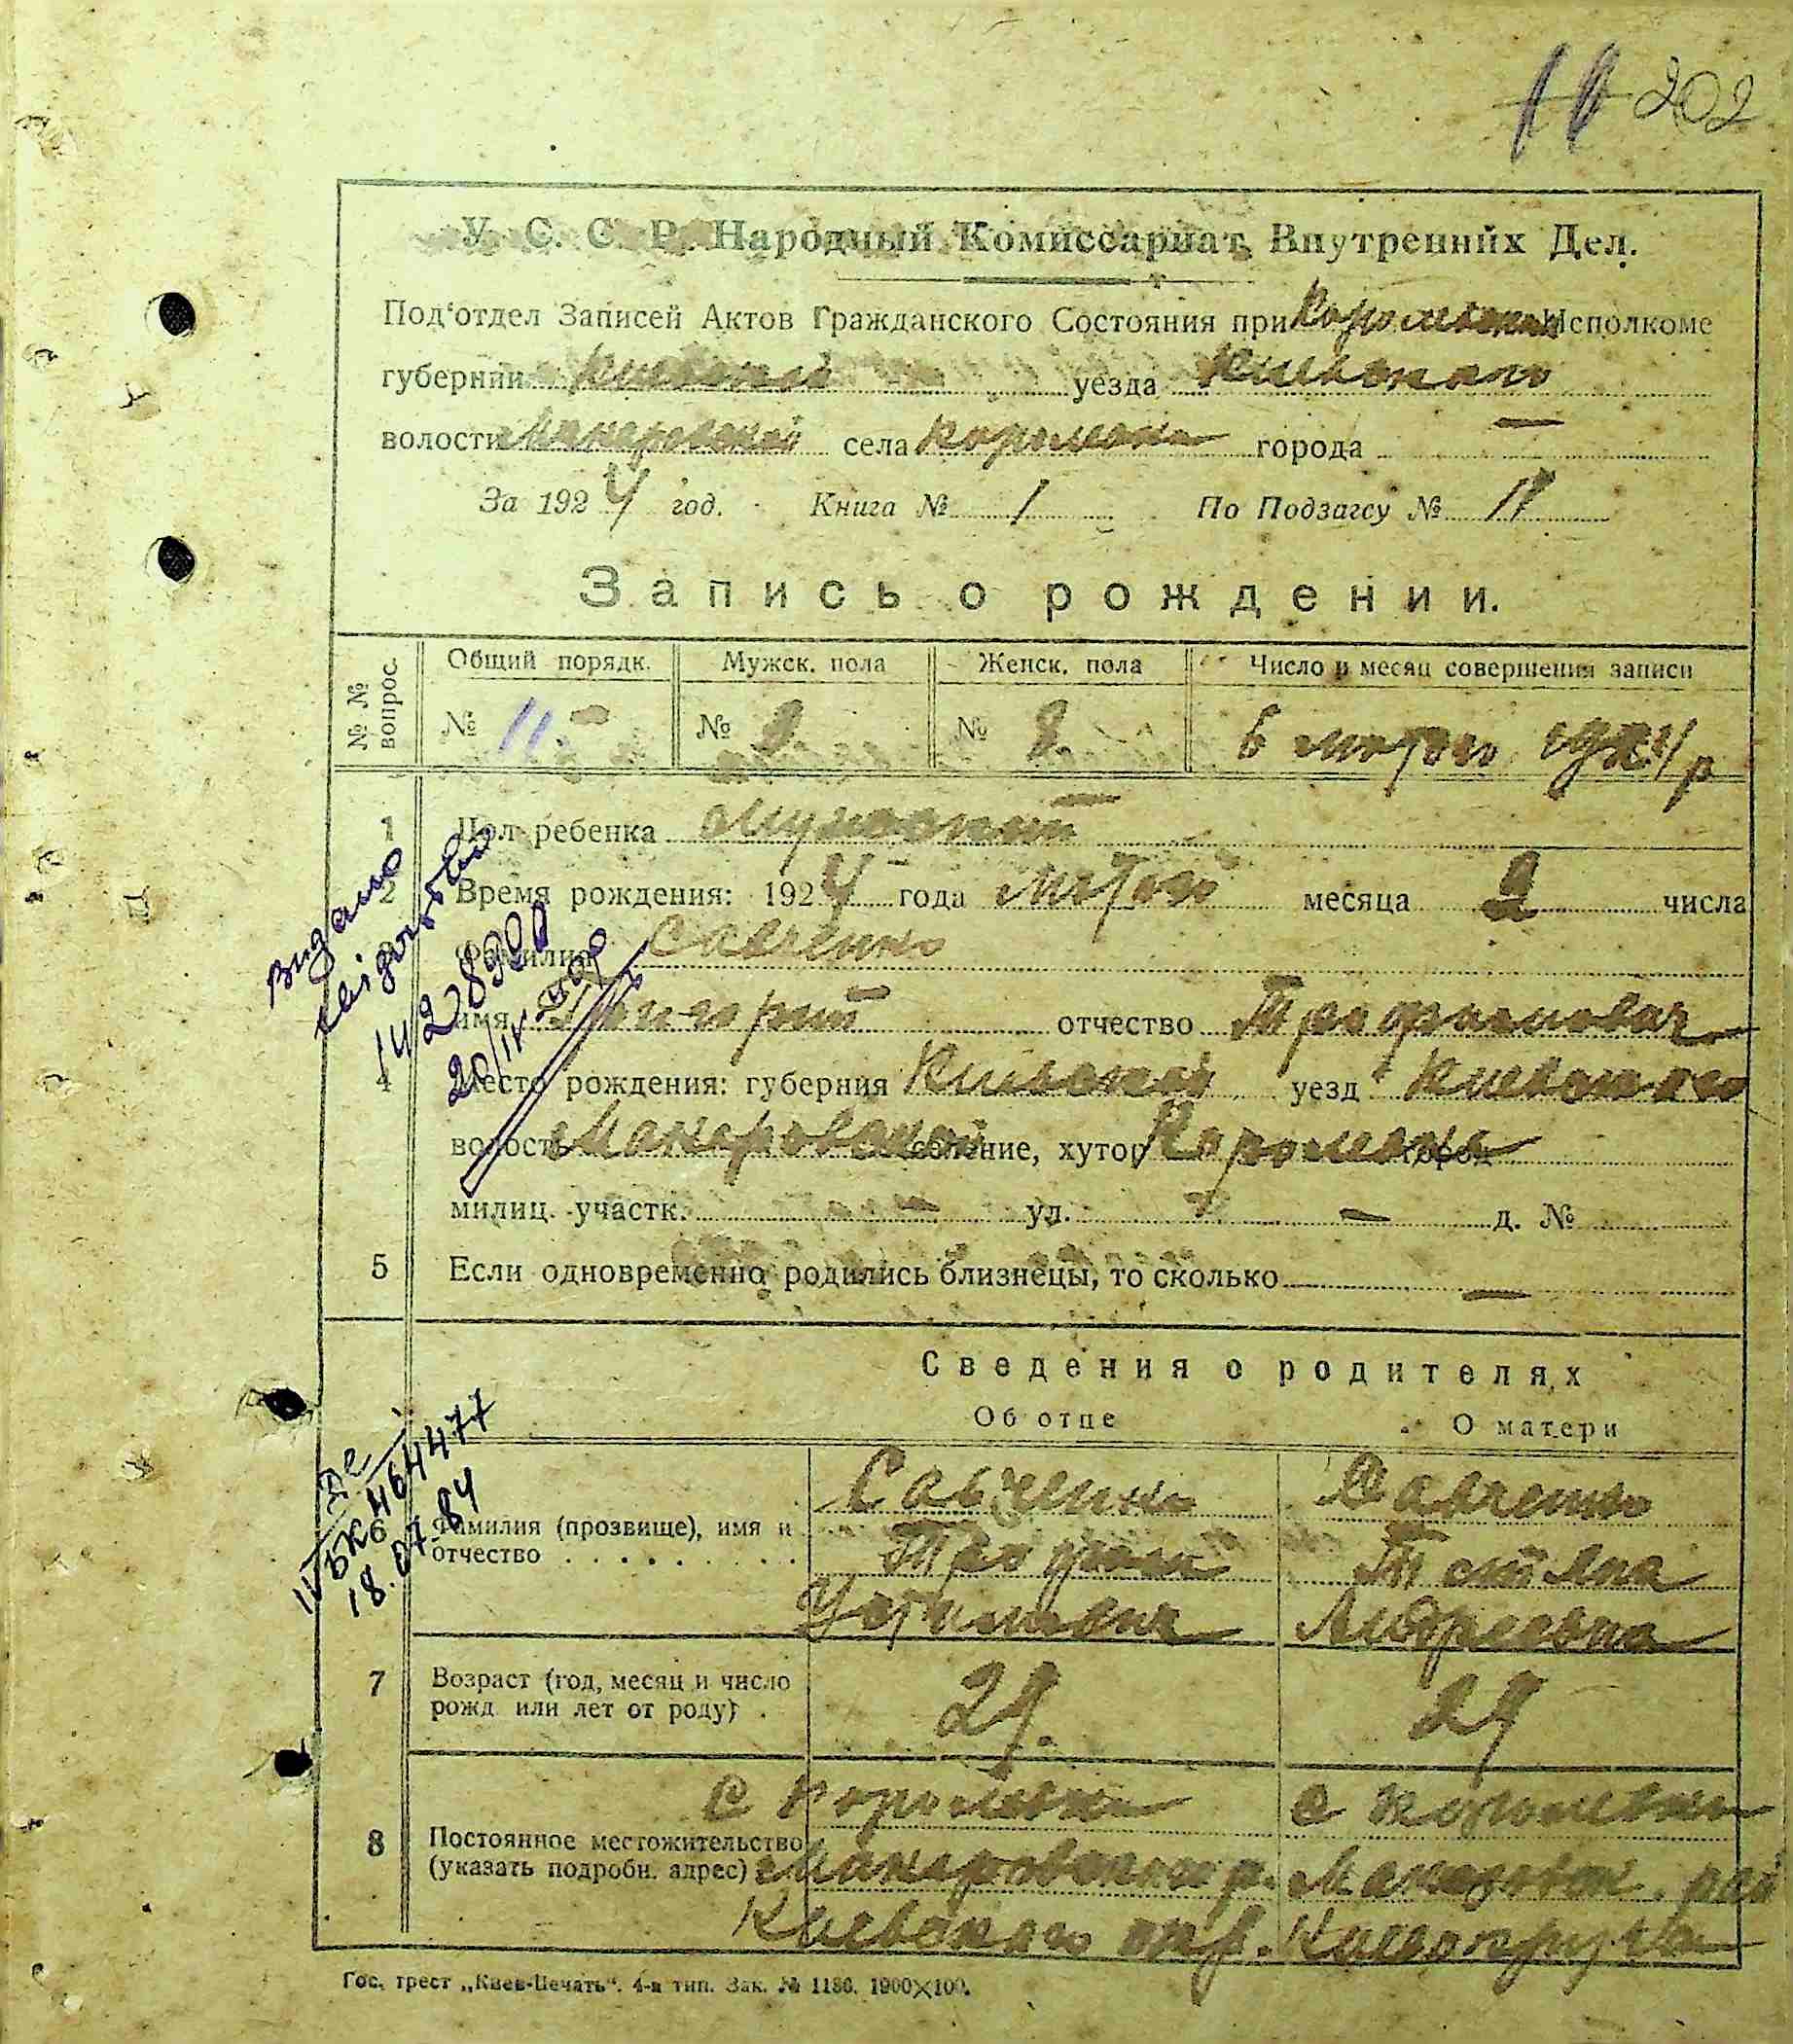 202
У. С. С. Р. Народный Комиссариат Внутренних Дел.
Под'отдел Записей Актов Гражданского Состояния при Исполкоме
губернии Киевской уезда Киевского
волости Макаровской села Королевки города —
За 1924 год. Книга № 1 По Подзагсу № 11
Запись о рождении.
№ № вопрос. Общий порядк. Мужск. пола Женск. пола Число и месяц совершения записи
№ 11 № № 8 6 лютого
1 Пол ребенка
2 Время рождения: 1924 года лютого месяца 2 числа
Фамилия Савченко
имя Григорий отчество Трофимович
4 Место рождения: губерния Киевской уезд Киевского
волость Макаровской селение, хутор Королевка город
милиц. участк. — ул. — д. №
5 Если одновременно родились близнецы, то сколько —
Видано
свідоцтво
Сведения о родителях
Об отце О матери
464477
18.07.84
Савченко Савченко
6 Фамилия (прозвище), имя и
отчество . . . . . . . . . Трофим Тетяна
Устимович Андреевна
7 Возраст (год, месяц и число
рожд или лет от роду) . 29. 29
с Королевки с Королевки
8 Постоянное местожительство
(указать подробн. адрес) Макаровского р. Макаровск. рай
Киевского окр. Киев округа
Гос. трест „Киев-Печать“. 4-я тип. Зак. № 1186. 1900×100.